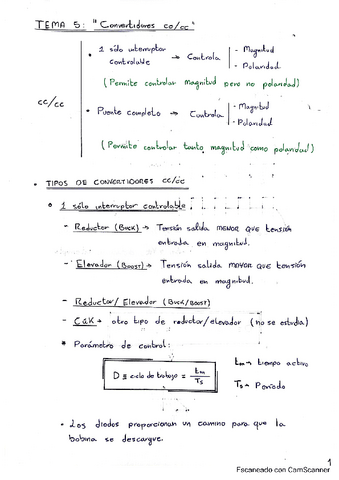 TEMA 5: "Convertidores cc/cc"
• 1 sólo interruptor controlable → Controla - Magnitud - Polaridad
(Permite controlar magnitud pero no polaridad)
cc/cc
• Puente completo → Controla - Magnitud - Polaridad
(Permite controlar tanto magnitud como polaridad)
• TIPOS DE CONVERTIDORES cc/cc
• 1 sólo interruptor controlable
- Reductor (BUCK) → Tensión salida MENOR QUE tensión
entrada en magnitud.
- Elevador (BOOST) → Tensión salida MAYOR QUE tensión
entrada en magnitud.
- Reductor/Elevador (BUCK/BOOST)
- CÚK → otro tipo de reductor/elevador (no se estudia)
* Parámetro de control:
D ≡ ciclo de trabajo = tm / Ts
tm → tiempo activo
Ts → Período
• Los diodos proporcionan un camino para que la
bobina se descargue.
1
Escaneado con CamScanner